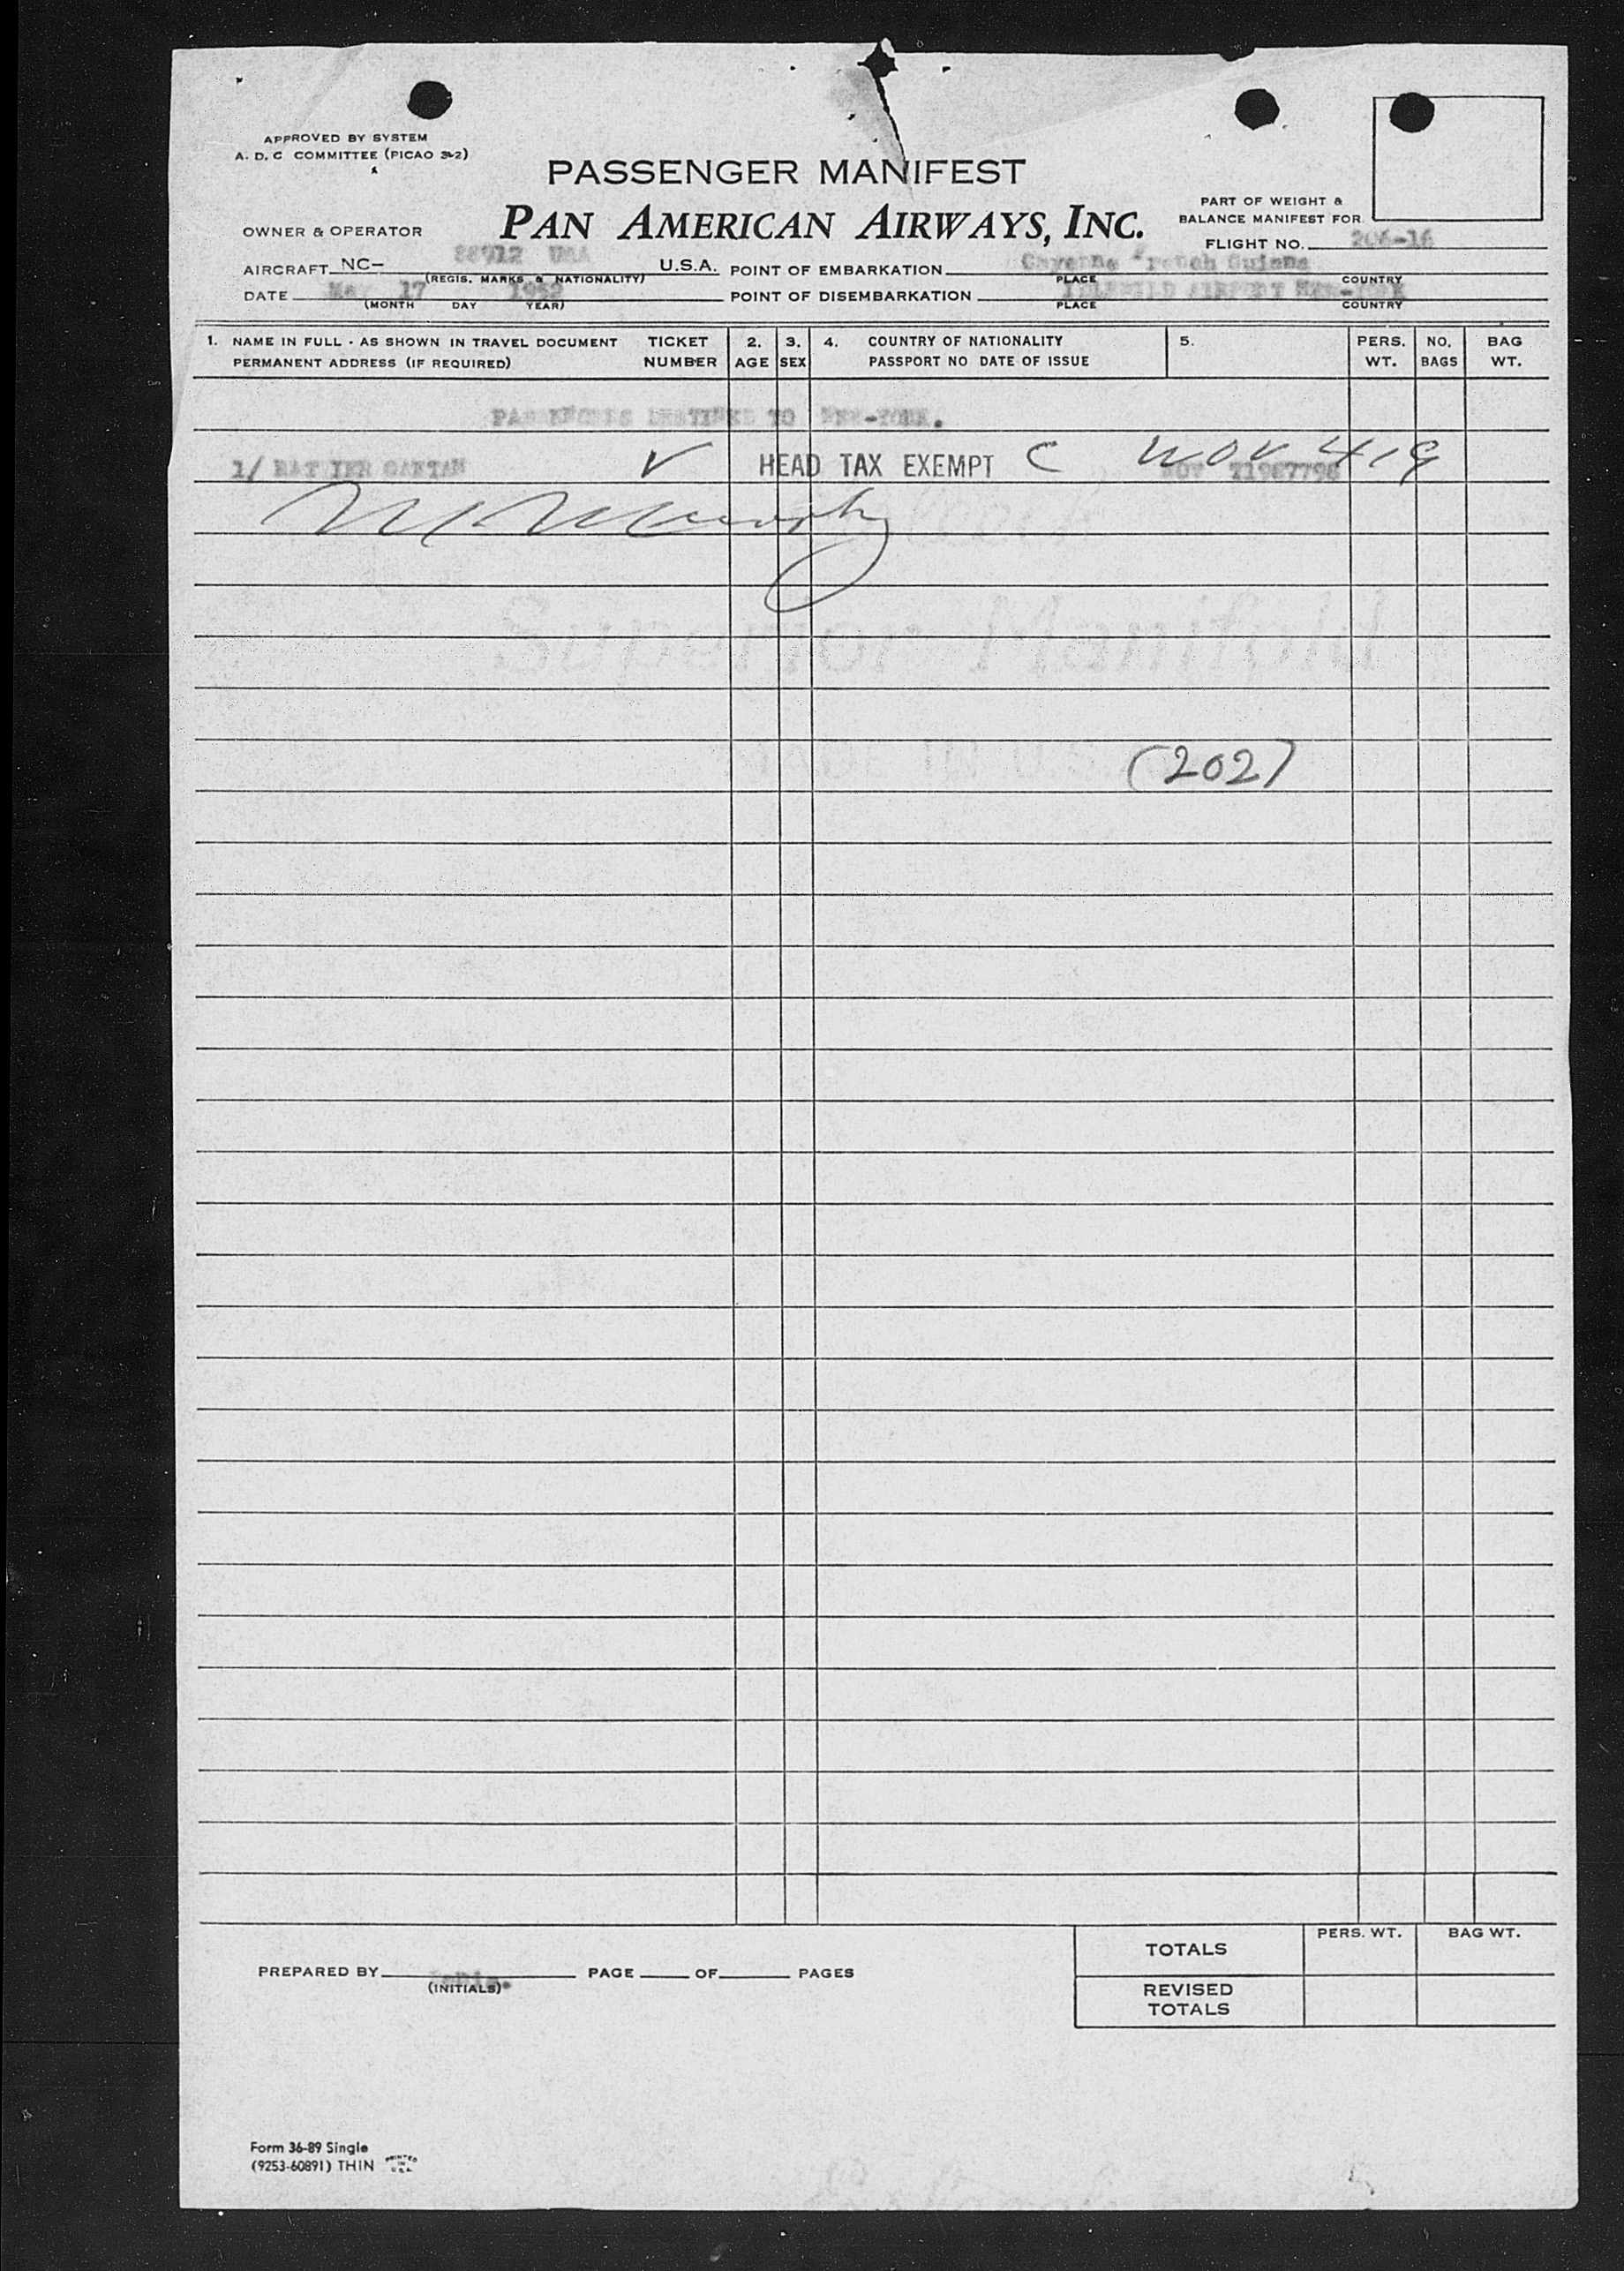 APPROVED BY SYSTEM
A. D. C COMMITTEE (PICAO 3-2)
PASSENGER MANIFEST
PAN AMERICAN AIRWAYS, INC.
OWNER & OPERATOR
PART OF WEIGHT &
BALANCE MANIFEST FOR
FLIGHT NO. 206-16
AIRCRAFT NC- 88912 U.S.A.
(REGIS. MARKS & NATIONALITY)
POINT OF EMBARKATION Cayenne French Guiana
PLACE COUNTRY
DATE 17 1952
(MONTH DAY YEAR)
POINT OF DISEMBARKATION IDLEWILD AIRPORT NEW-YORK
PLACE COUNTRY
1. NAME IN FULL - AS SHOWN IN TRAVEL DOCUMENT TICKET 2. 3. 4. COUNTRY OF NATIONALITY 5. PERS. NO. BAG
PERMANENT ADDRESS (IF REQUIRED) NUMBER AGE SEX PASSPORT NO DATE OF ISSUE WT. BAGS WT.
PASSENGERS DESTINED TO NEW-YORK.
1/ GAETAN V HEAD TAX EXEMPT C
Superior Manifold
MADE IN U.S.
(202)
TOTALS PERS. WT. BAG WT.
REVISED
TOTALS
PREPARED BY PAGE OF PAGES
(INITIALS)
Form 36-89 Single
(9253-60891) THIN PRINTED IN U.S.A.